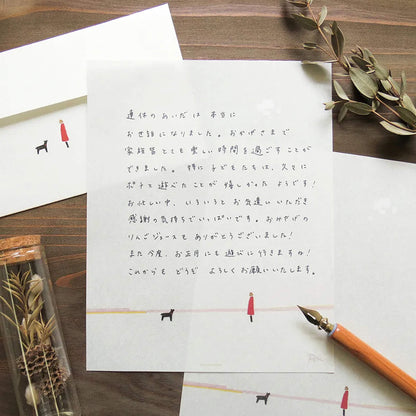 連休のあいだは 本当に
お世話になりました。おかげさまで
家族皆とても楽しい時間を過ごすことが
できました。特に 子どもたちは、久々に
ポチと遊べたことが 嬉しかったようです!
お忙しい中、いろいろとお気遣いいただき
感謝の気持ちでいっぱいです。おみやげの
りんごジュースも ありがとうございました!
また今度、お正月にも 遊びに行きますね!
これからも どうぞ よろしくお願いいたします。